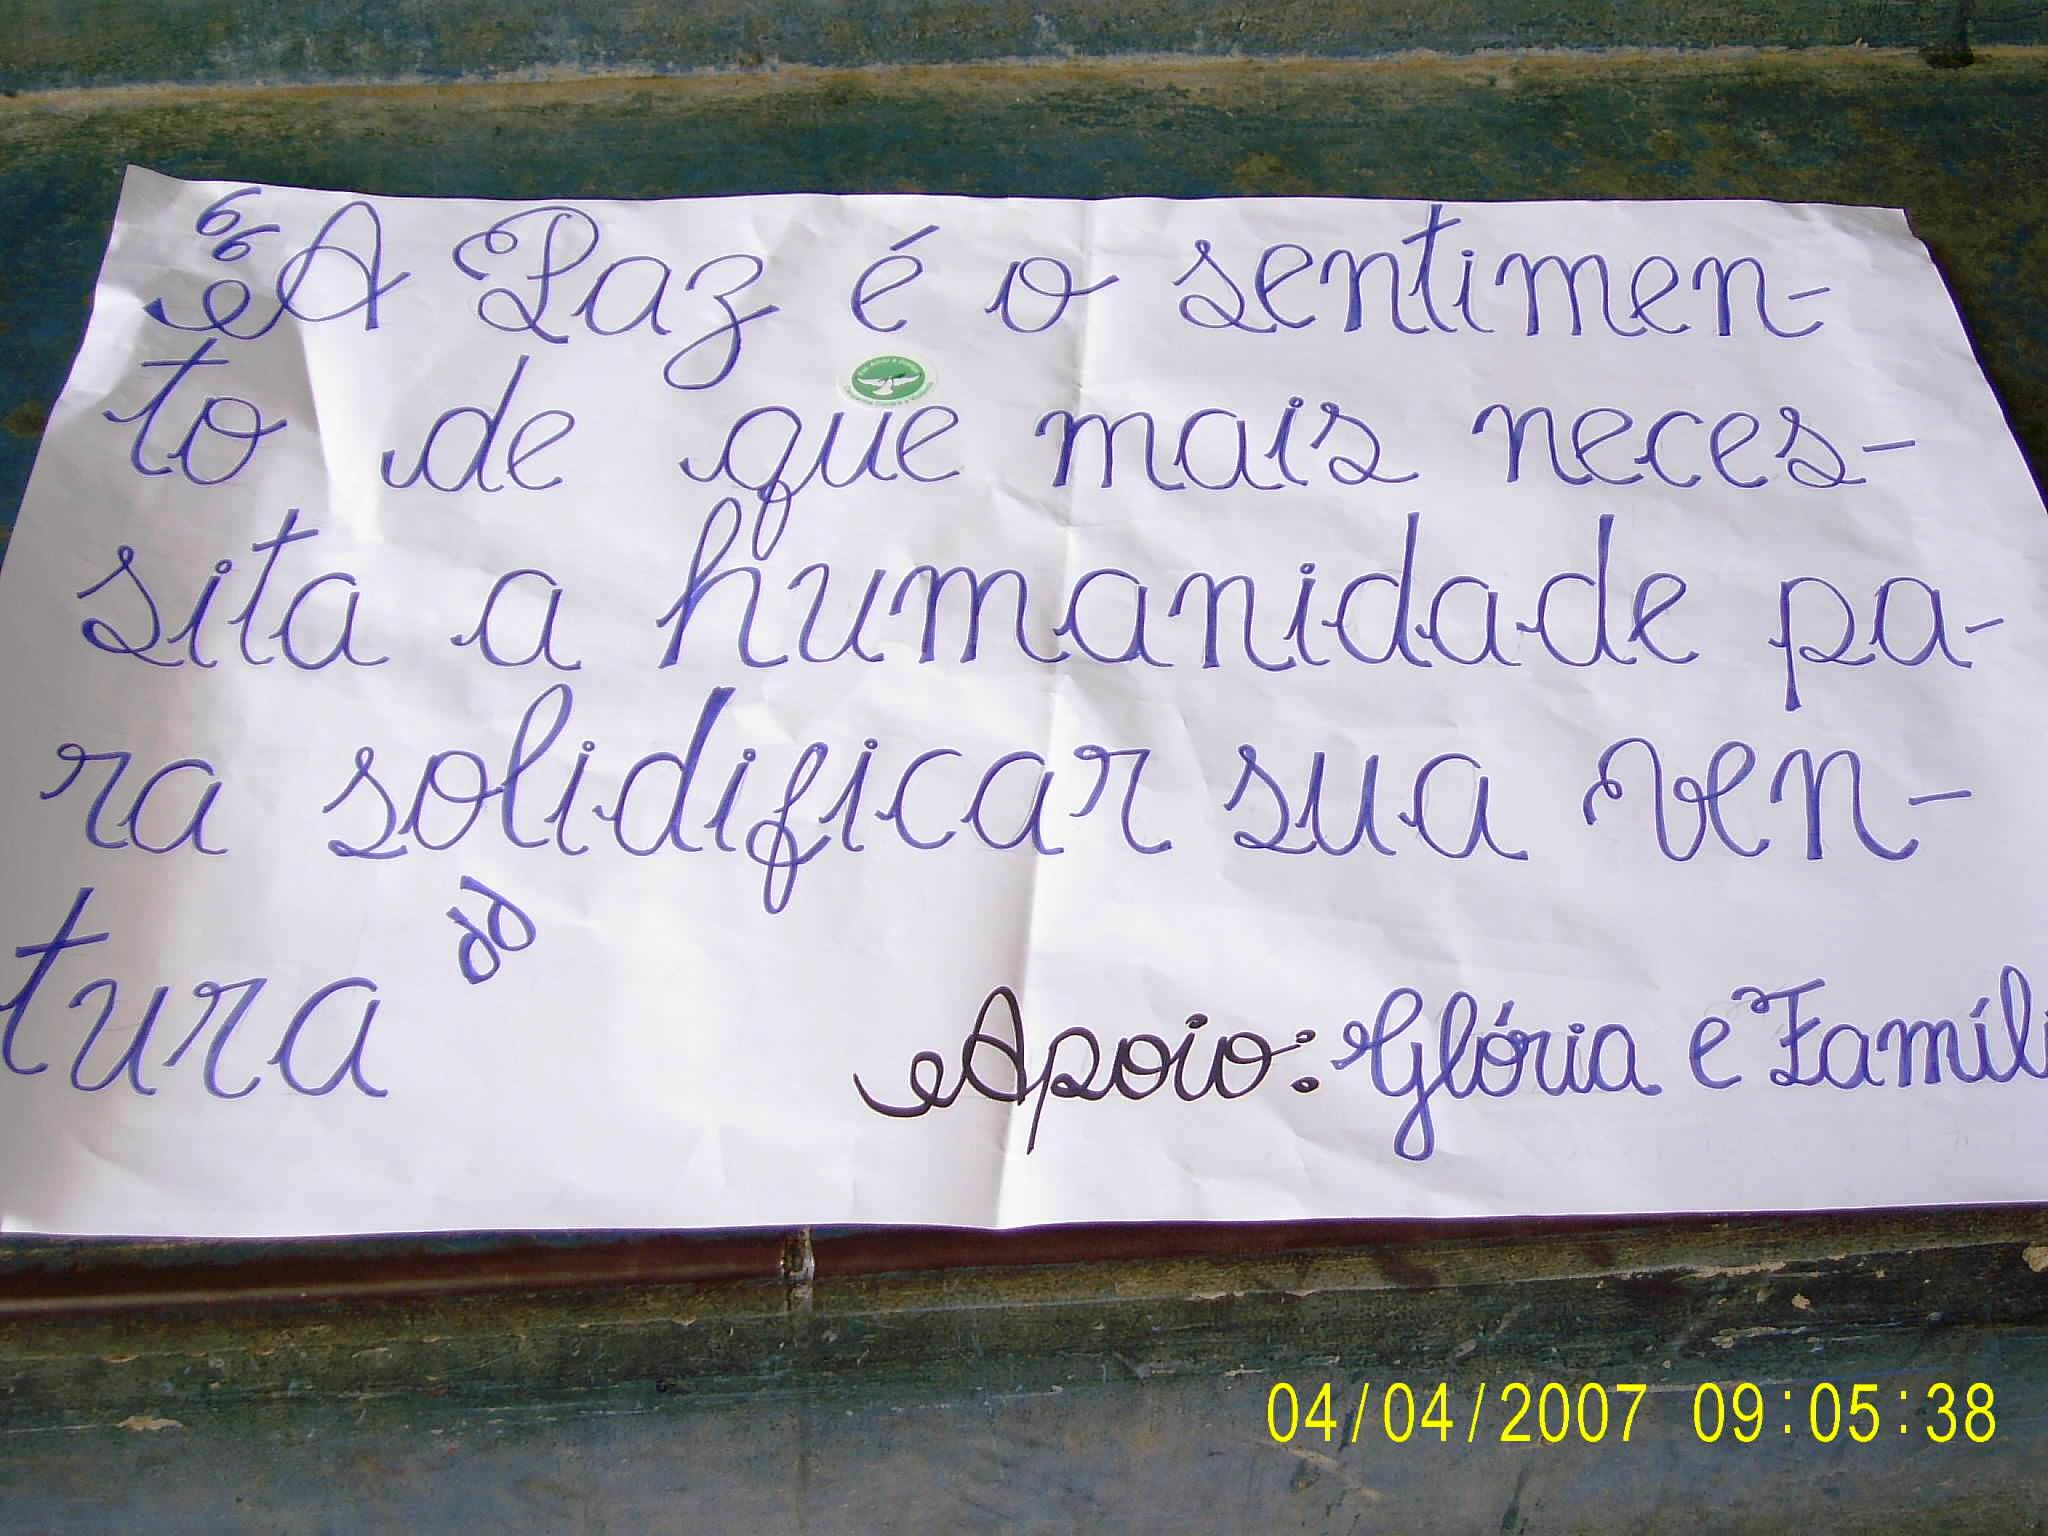 “A Paz é o sentimen-
to de que mais neces-
sita a humanidade pa-
ra solidificar sua ven-
tura”
Apoio: Glória e Famíli
04/04/2007 09:05:38